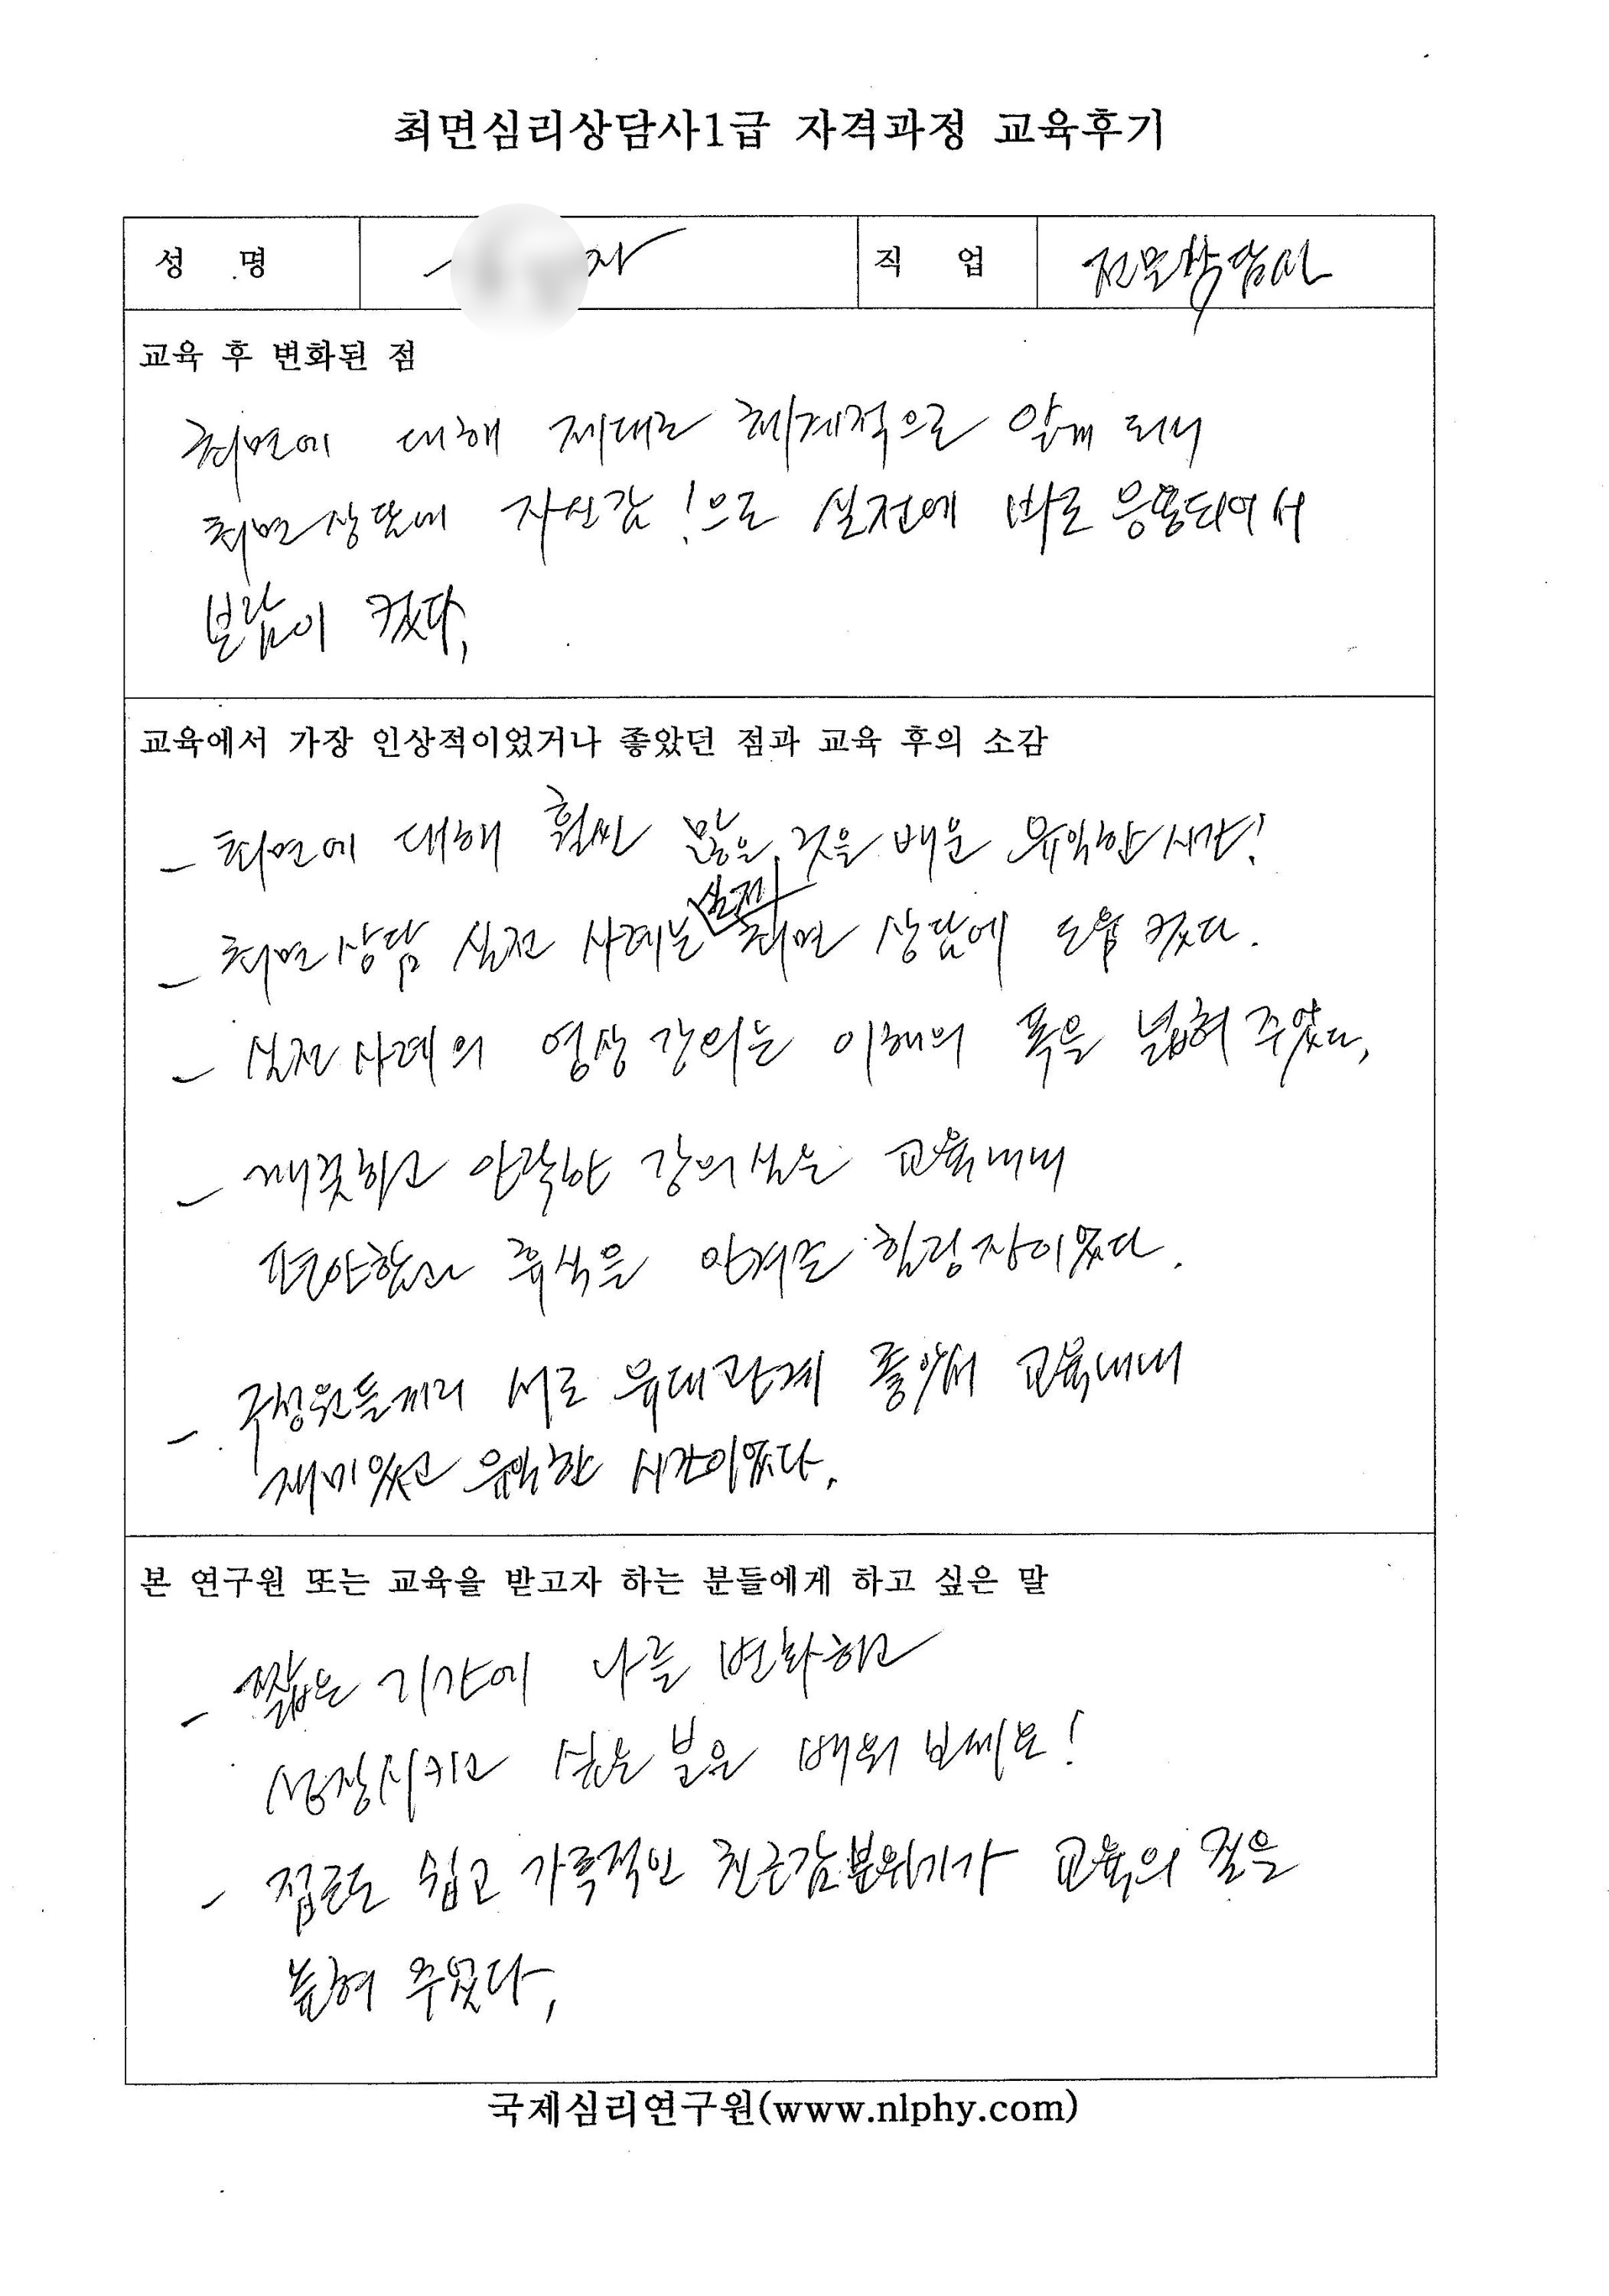 최면심리상담사1급 자격과정 교육후기
성 명 자 직 업 전문상담사
교육 후 변화된 점
최면에 대해 제대로 체계적으로 알게 되니
최면상담에 자신감!으로 실전에 바로 응용되어서
보람이 컸다,
교육에서 가장 인상적이었거나 좋았던 점과 교육 후의 소감
- 최면에 대해 훨씬 많은 것을 배운 유익한 시간!
실전
- 최면상담 실전 사례는 최면 상담에 도움 컸다.
- 실전사례의 영상강의는 이해의 폭을 넓혀 주었다,
- 깨끗하고 안락한 강의실은 교육내내
편안함과 휴식을 안겨준 힐링장이었다.
- 구성원들끼리 서로 유대관계 좋아서 교육내내
재미있고 유익한 시간이었다.
본 연구원 또는 교육을 받고자 하는 분들에게 하고 싶은 말
- 짧은 기간에 나를 변화하고
성장시키고 싶은 분은 배워 보세요!
- 접근도 쉽고 가족적인 친근감분위기가 교육의 질을
높혀 주었다,
국제심리연구원(www.nlphy.com)